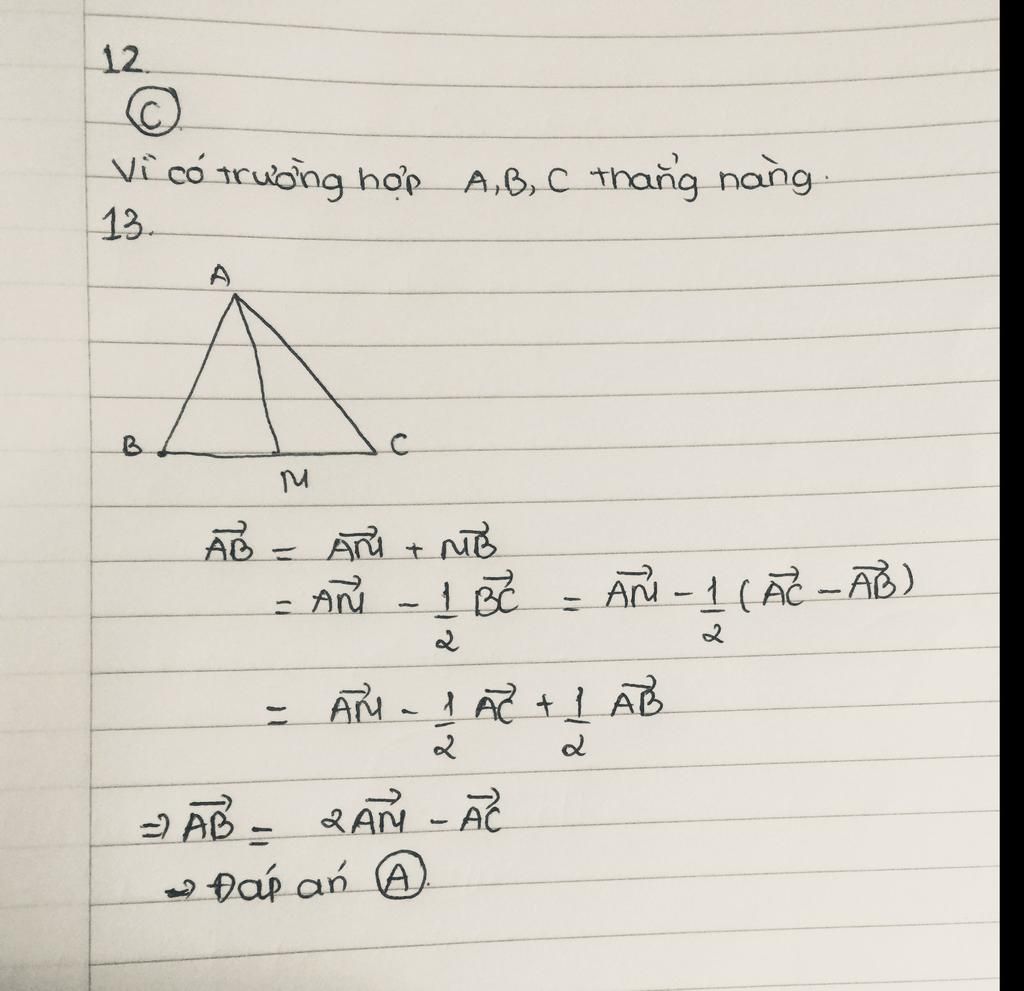 12.
C
Vì có trường hợp A, B, C thẳng hàng.
13.
A
B C
M
\overrightarrow{AB} = \overrightarrow{AM} + \overrightarrow{MB}
= \overrightarrow{AM} - \frac{1}{2} \overrightarrow{BC} = \overrightarrow{AM} - \frac{1}{2} (\overrightarrow{AC} - \overrightarrow{AB})
= \overrightarrow{AM} - \frac{1}{2} \overrightarrow{AC} + \frac{1}{2} \overrightarrow{AB}
⇒ \overrightarrow{AB} = 2\overrightarrow{AM} - \overrightarrow{AC}
→ Đáp án A.